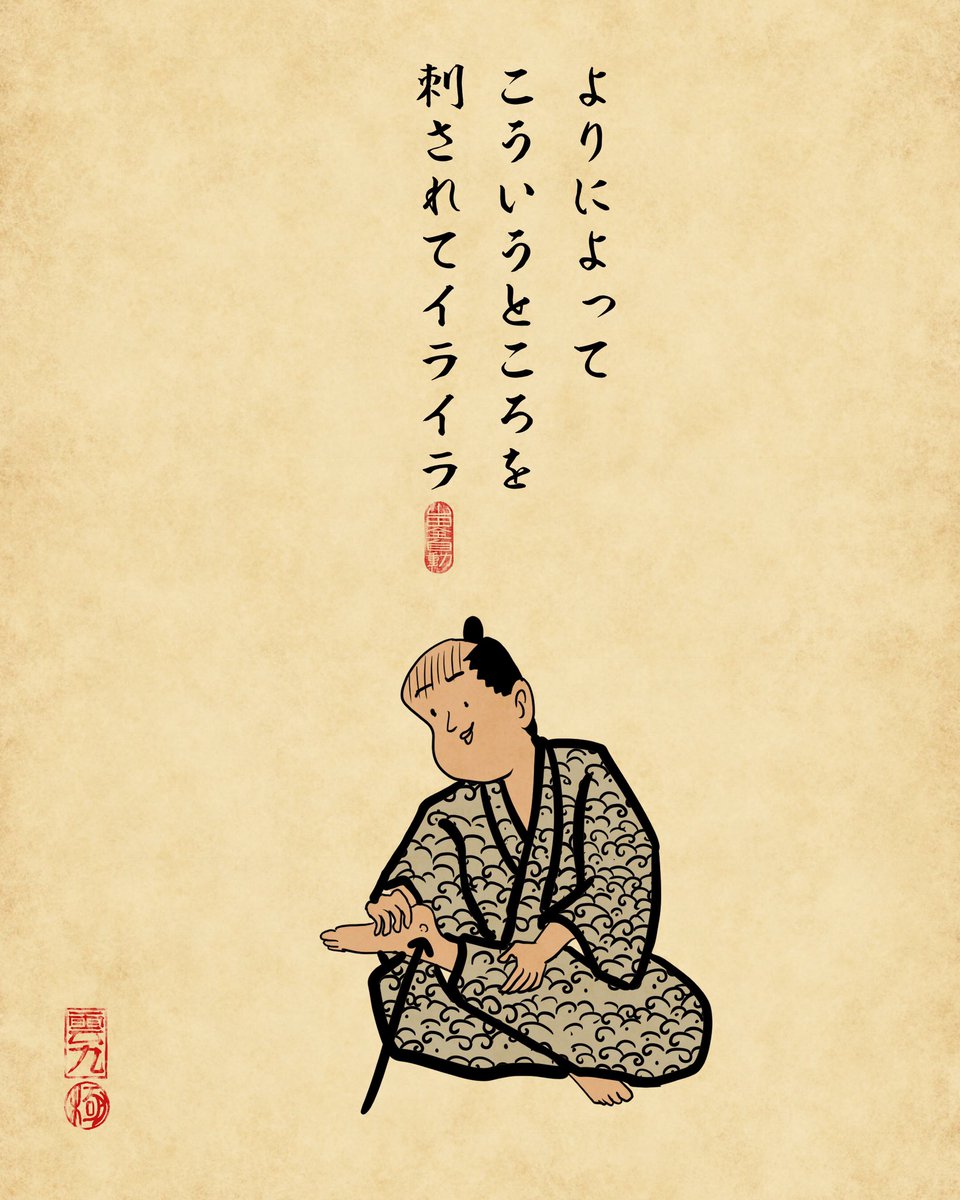 よりによって
こういうところを
刺されてイライラ